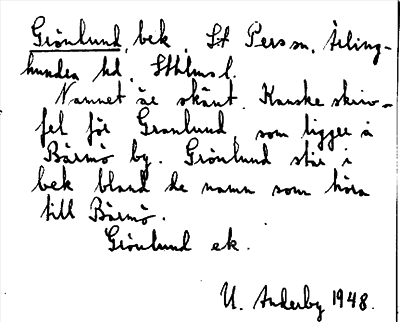 Grönlund, bek, St Pers sn, Seming-
hundra hd, Sthlms l.
Namnet är okänt. Kanske skriv-
fel för Granlund, som ligger å
Bärmö by. Grönlund står i
bek bland de namn som höra
till Bärmö.
Grönlund ek.
U. Anderby 1948.